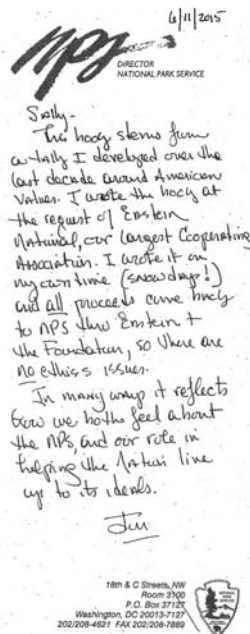 6/11/2015
NPS
DIRECTOR
NATIONAL PARK SERVICE
Sally-
This book stems from
a talk I developed over the
last decade around American
Values. I wrote the book at
the request of Eastern
National, our largest Cooperating
Association. I wrote it on
my own time (snowdays!)
and all proceeds come back
to NPS thru Eastern +
the Foundation, so there are
no ethics issues.
In many ways it reflects
how we both feel about
the NPS, and our role in
helping the Nation live
up to its ideals.
Jon
18th & C Streets, NW
Room 3100
P.O. Box 37127
Washington, DC 20013-7127
202/208-4621 FAX 202/208-7889
NATIONAL
PARK
SERVICE